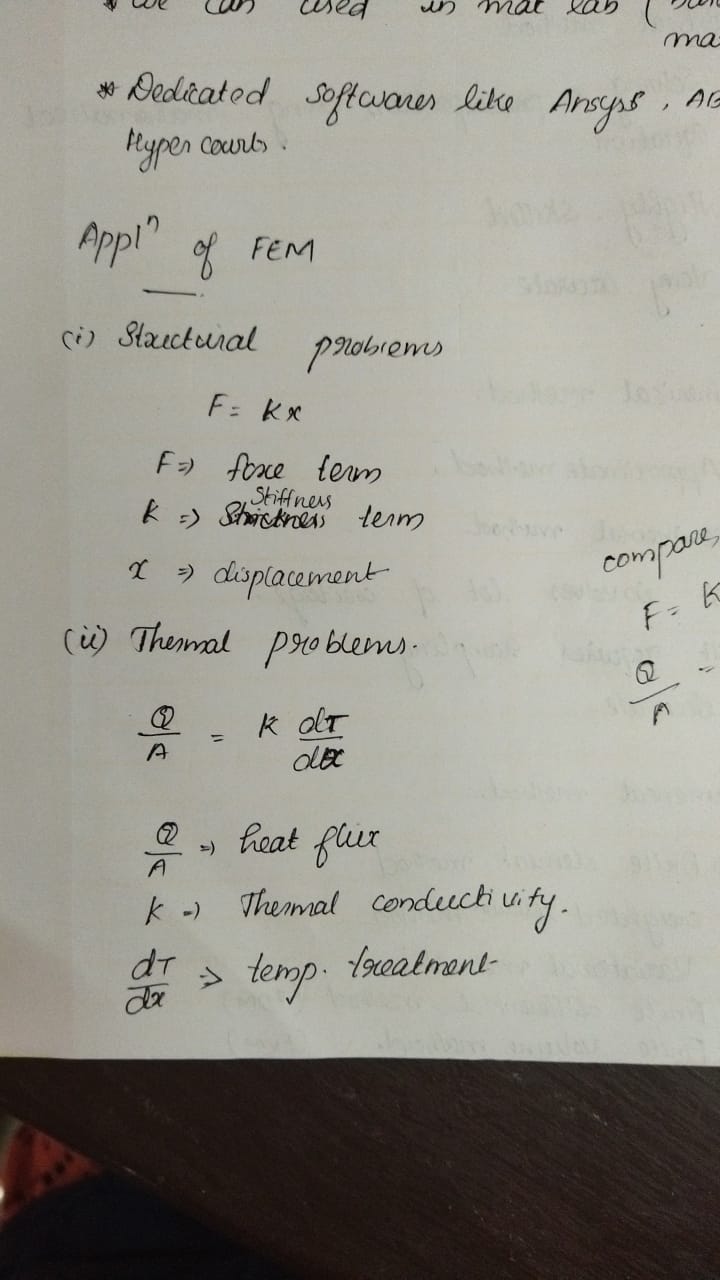 * we can used in mat lab (
ma
* Dedicated softwares like Ansyss, AB
Hyper courts.
Appln of FEM
(i) Structural problems
F = Kx
F => force term
Stiffness
K => term
x => displacement
compare,
F = K
Q/A =
(ii) Thermal problems.
Q/A = K dT/dx
Q/A => heat flux
K => Thermal conductivity.
dT/dx => temp. treatment